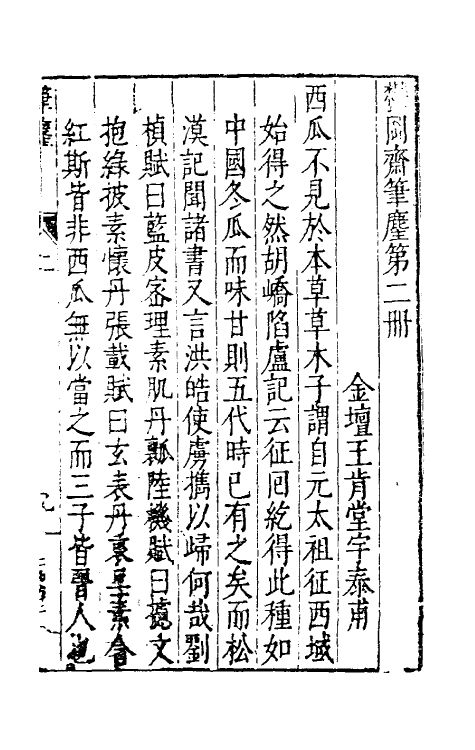 鬱岡齋筆麈第二冊
金壇王肯堂宇泰甫
西瓜不見於本草草木子謂自元太祖征西域
始得之然胡嶠陷盧記云征回紇得此種如
中國冬瓜而味甘則五代時已有之矣而松
漠記聞諸書又言洪皓使虜攜以歸何哉劉
楨賦曰藍皮密理素肌丹瓤陸機賦曰攄文
抱綠被素懷丹張載賦曰玄表丹裏呈素含
紅斯皆非西瓜無以當之而三子皆晉人也
筆麈
卷二